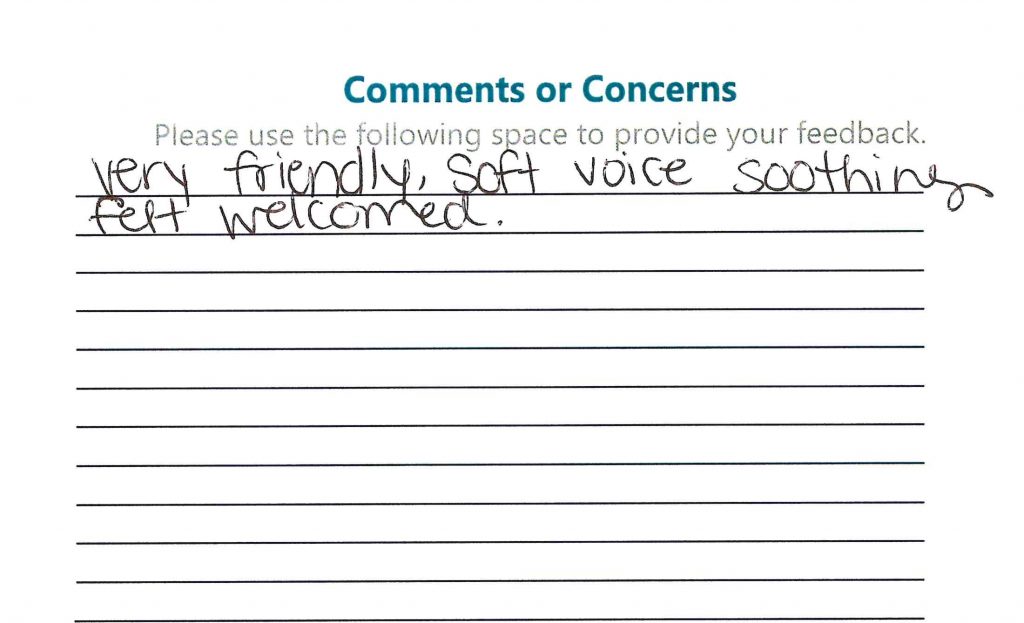 Comments or Concerns
Please use the following space to provide your feedback.
very friendly, soft voice soothing
felt welcomed.